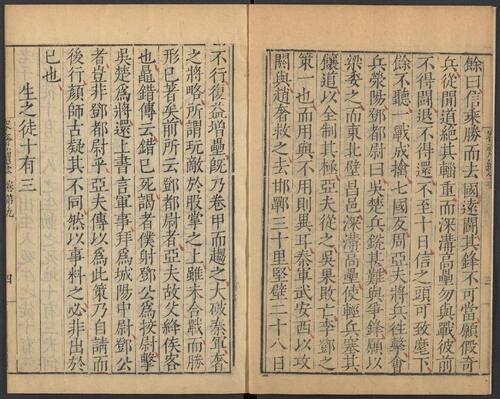 餘曰信乘勝而去國遠鬬其鋒不可當願假奇
兵從間道絶其輜重而深溝高壘勿與戰彼前
不得鬬退不得還不至十日信之頭可致麾下
餘不聽一戰成擒七國反周亞夫將兵往擊會
兵滎陽鄧都尉曰吳楚兵銳甚難與爭鋒願以
梁委之而東北壁昌邑深溝高壘使輕兵塞其
饟道以全制其極亞夫從之吳果敗亡李鄧之
策一也而用與不用則異耳秦軍武安西以攻
閼與趙奢救之去邯鄲三十里堅壁二十八日
不行復益增壘既乃卷甲而趨之大破秦軍奢
之將略所謂玩敵於股掌之上雖未合戰而勝
形已著矣前所云鄧都尉者亞夫故父絳侯客
也鼂錯傳云錯已死謁者僕射鄧公爲校尉擊
吳楚爲將還上書言軍事拜爲城陽中尉鄧公
者豈非鄧都尉乎亞夫傳以爲此策乃自請而
後行顏師古疑其不同然以事料之必非出於
已也
生之徒十有三
卷第九
四